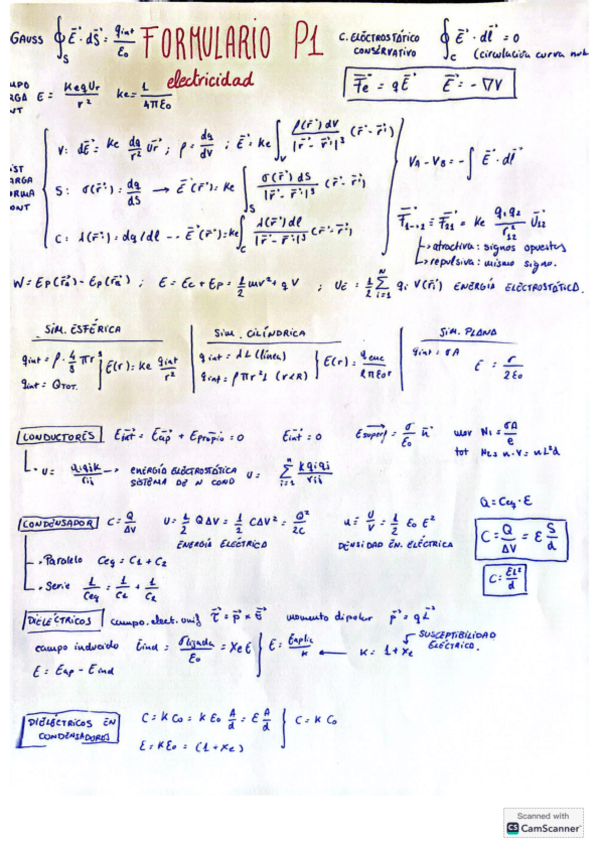 GAUSS ∮_S E⃗·dS⃗ = qint/ε0
FORMULARIO P1
electricidad
C. ELECTROSTÁTICO CONSERVATIVO ∮_C E⃗·dl⃗ = 0
(circulación curva nula
F⃗e = qE⃗ E⃗ = -∇V
E = Ke q Ur/r² Ke = 1/4πε0
V: dE⃗ = Ke dq/r² U⃗r ; ρ = dq/dV ; E⃗ = Ke ∫_V ρ(r⃗') dV/|r⃗ - r⃗'|³ (r⃗ - r⃗')
S: σ(r⃗') = dq/dS → E⃗(r⃗) = Ke ∫_S σ(r⃗') dS/|r⃗ - r⃗'|³ (r⃗ - r⃗')
C: λ(r⃗') = dq/dl → E⃗(r⃗) = Ke ∫_C λ(r⃗') dl/|r⃗ - r⃗'|³ (r⃗ - r⃗')
VA - VB = -∫ E⃗·dl⃗
F⃗1→2 = F⃗21 = Ke q1q2/r²12 U⃗12
↳ atractiva: signos opuestos
↳ repulsiva: mismo signo.
; E = Ec + Ep = 1/2 mv² + qV ; UE = 1/2 Σ_{i=1}^N qi V(r⃗i) ENERGÍA ELECTROSTÁTICA.
SIM. ESFÉRICA
qint = ρ · 4/3 πr³
qint = QTOT.
} E(r) = Ke qint/r²
SIM. CILÍNDRICA
qint = λL (línea)
qint = ρπr²L (r<R)
} E(r) = qenc/2πε0r
SIM. PLANA
qint = σA
E = r/2ε0
CONDUCTORES E⃗int = E⃗ap + Epropio = 0 E⃗int = 0 E⃗superf = σ/ε0 n⃗
mov N1 = σA/e
tot
ENERGÍA ELECTROSTÁTICA SISTEMA DE N COND
Q = Ceq · E
CONDENSADOR C = Q/ΔV U = 1/2 QΔV = 1/2 CΔV² = Q²/2C u = U/V = 1/2 ε0 E²
ENERGÍA ELÉCTRICA DENSIDAD EN. ELÉCTRICA
C = Q/ΔV = ε S/d
C = εL²/d
→ Paralelo Ceq = C1 + C2
→ Serie 1/Ceq = 1/C1 + 1/C2
DIELÉCTRICOS campo. elect. unif τ⃗ = p⃗ × E⃗ momento dipolar p⃗ = qL⃗
campo inducido Eind = σligada/ε0 = Xe E } E = Eaplic/K ← K = 1 + Xe
SUSCEPTIBILIDAD ELÉCTRICO.
E = Eap - Eind
DIELÉCTRICOS EN CONDENSADORES
C = K C0 = K ε0 A/d = ε A/d } C = K C0
ε = Kε0 = (1 + Xe)
Scanned with
CS CamScanner